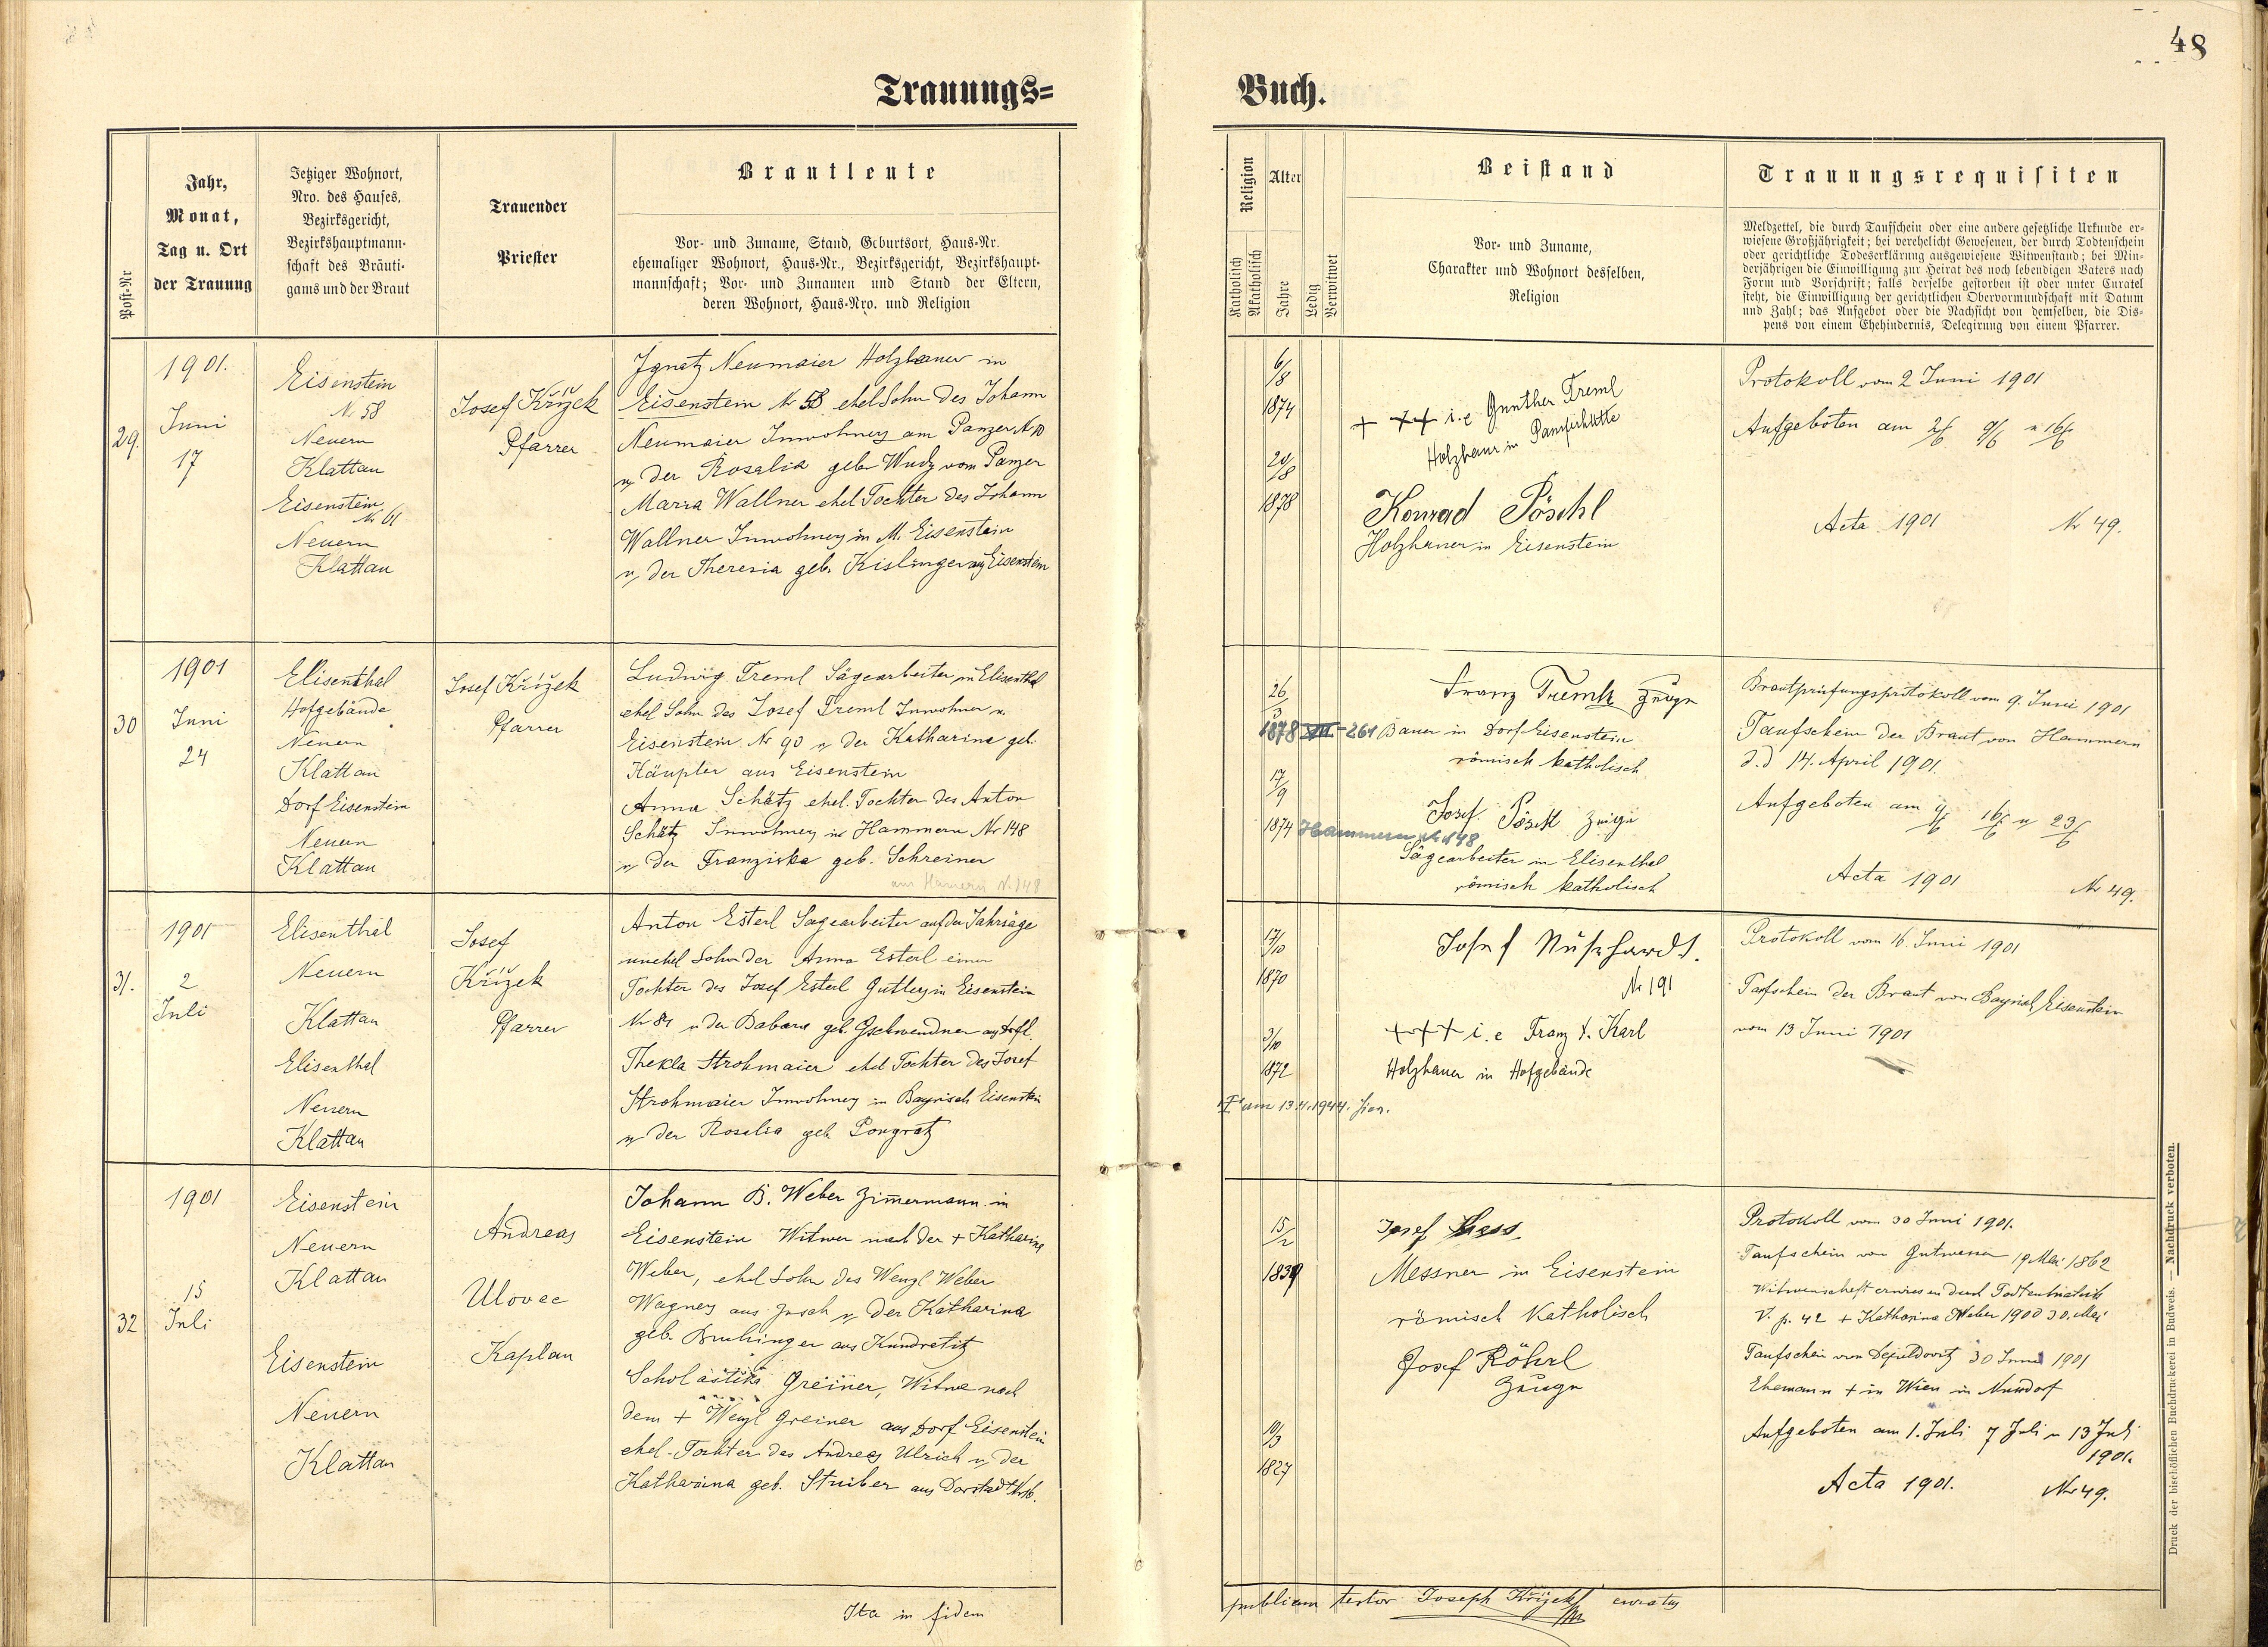 48
Trauungs=
Buch.
Post-Nr
Jahr,
Monat,
Tag u. Ort
der Trauung
Jetziger Wohnort,
Nro. des Hauses,
Bezirksgericht,
Bezirkshauptmann-
schaft des Bräuti-
gams und der Braut
Trauender
Priester
Brautleute
Vor- und Zuname, Stand, Geburtsort, Haus-Nr.
ehemaliger Wohnort, Haus-Nr., Bezirksgericht, Bezirkshaupt-
mannschaft; Vor- und Zunamen und Stand der Eltern,
deren Wohnort, Haus-Nro. und Religion
Religion
Katholisch
Akatholisch
Alter
Jahre
Ledig
Verwitwet
Beistand
Vor- und Zuname,
Charakter und Wohnort desselben,
Religion
Trauungsrequisiten
Meldzettel, die durch Taufschein oder eine andere gesetzliche Urkunde er-
wiesene Großjährigkeit; bei verehelicht Gewesenen, der durch Todtenschein
oder gerichtliche Todeserklärung ausgewiesene Witwenstand; bei Min-
derjährigen die Einwilligung zur Heirat des noch lebendigen Vaters nach
Form und Vorschrift; falls derselbe gestorben ist oder unter Curatel
steht, die Einwilligung der gerichtlichen Obervormundschaft mit Datum
und Zahl; das Aufgebot oder die Nachsicht von demselben, die Dis-
pens von einem Ehehindernis, Delegirung von einem Pfarrer.
29.
1901.
Juni
17
Eisenstein
N. 58
Neuern
Klattau
Eisenstein
Nr 61
Neuern
Klattau
Josef Křížek
Pfarrer
Ignatz Neumaier Holzhauer in
Eisenstein Nr 58 ehel Sohn des Johann
Neumaier Inwohners am Panzer N 10
u. der Rosalia geb. Wudy vom Panzer
Maria Wallner ehel Tochter des Johann
Wallner Inwohners in M. Eisenstein
u. der Theresia geb. Kislinger aus Eisenstein
6/8
1874
20/8
1878
+ ++ i.e Gunther Treml
Holzhauer in
Konrad Pöschl
Holzhauer in Eisenstein
Protokoll vom 2 Juni 1901
Aufgeboten am 2/6 9/6 u 16/6
Acta 1901 Nr 49.
30
1901
Juni
24
Elisenthal
Hofgebäude
Neuern
Klattau
Dorf Eisenstein
Neuern
Klattau
Josef Křížek
Pfarrer
Ludwig Treml Sägearbeiter in Elisenthal
ehel Sohn des Josef Treml Inwohner u.
Eisenstein Nr 90 u der Katharina geb.
Häupler aus Eisenstein
Anna Schätz ehel. Tochter des Anton
Schätz Inwohners in Hammern Nr 148
u. der Franziska geb. Schreiner
aus Hamern N. 148
26/3
1878 VIII-261
17/9
1874 Hammern Nr 148
Franz Zeuge
Bauer in Dorf Eisenstein
römisch katholisch
Josef Pöschl Zeuge
Sägearbeiter in Elisenthal
römisch katholisch
Brautprüfungsprotokoll vom 9. Juni 1901
Taufschein der Braut von Hammern
d.d 14. April 1901.
Aufgeboten am 9/6 16/6 u 23/6
Acta 1901 Nr 49.
31.
1901
2
Juli
Elisenthal
Neuern
Klattau
Elisenthal
Neuern
Klattau
Josef
Křížek
Pfarrer
Anton Esterl Sagearbeiter auf der
unehel Sohn der Anna Esterl einer
Tochter des Josef Esterl Gutlers in Eisenstein
Nr 81 u der Babara geb. Gschwendner
Thekla Strohmaier ehel Tochter des Josef
Strohmaier Inwohners in Bayrisch Eisenstein
u der Rosalia geb. Pongratz
17/10
1870
3/10
1872
Josef
Nr 191
+++ i.e Franz X. Karl
Holzhauer in Hofgebäude
Protokoll vom 16 Juni 1901
Taufschein der Braut von Bayrisch Eisenstein
vom 13 Juni 1901
32
1901
15
Juli
Eisenstein
Neuern
Klattau
Eisenstein
Neuern
Klattau
Andreas
Ulovec
Kaplan
Johann B. Weber Zimermann in
Eisenstein Witwer nach der + Katharina
Weber, ehel Sohn des Wenzl Weber
Wagners aus u. der Katharina
geb. aus Kundratitz
Scholastika Greiner, Witwe nach
dem + Wenzl Greiner aus Dorf Eisenstein
ehel. Tochter des Andreas Ulrich u. der
Katharina geb. Struiber aus
15/2
1839
10/3
1827
Josef
Messner in Eisenstein
römisch Katholisch
Josef Röhrl
Zeuge
Protokoll vom 30 Juni 1901.
Taufschein von Gutwasser 19 Mai 1862
V. p. 42 + Katharina Weber 1900 30. Mai
Taufschein von 30 Juni 1901
Ehemann + in Wien in
Aufgeboten am 1. Juli 7 Juli u 13 Juli
1901.
Acta 1901. Nr 49.
Ita in fidem
publicam testor Joseph Křížek curatus
Druck der bischöflichen Buchdruckerei in Budweis. — Nachdruck verboten.